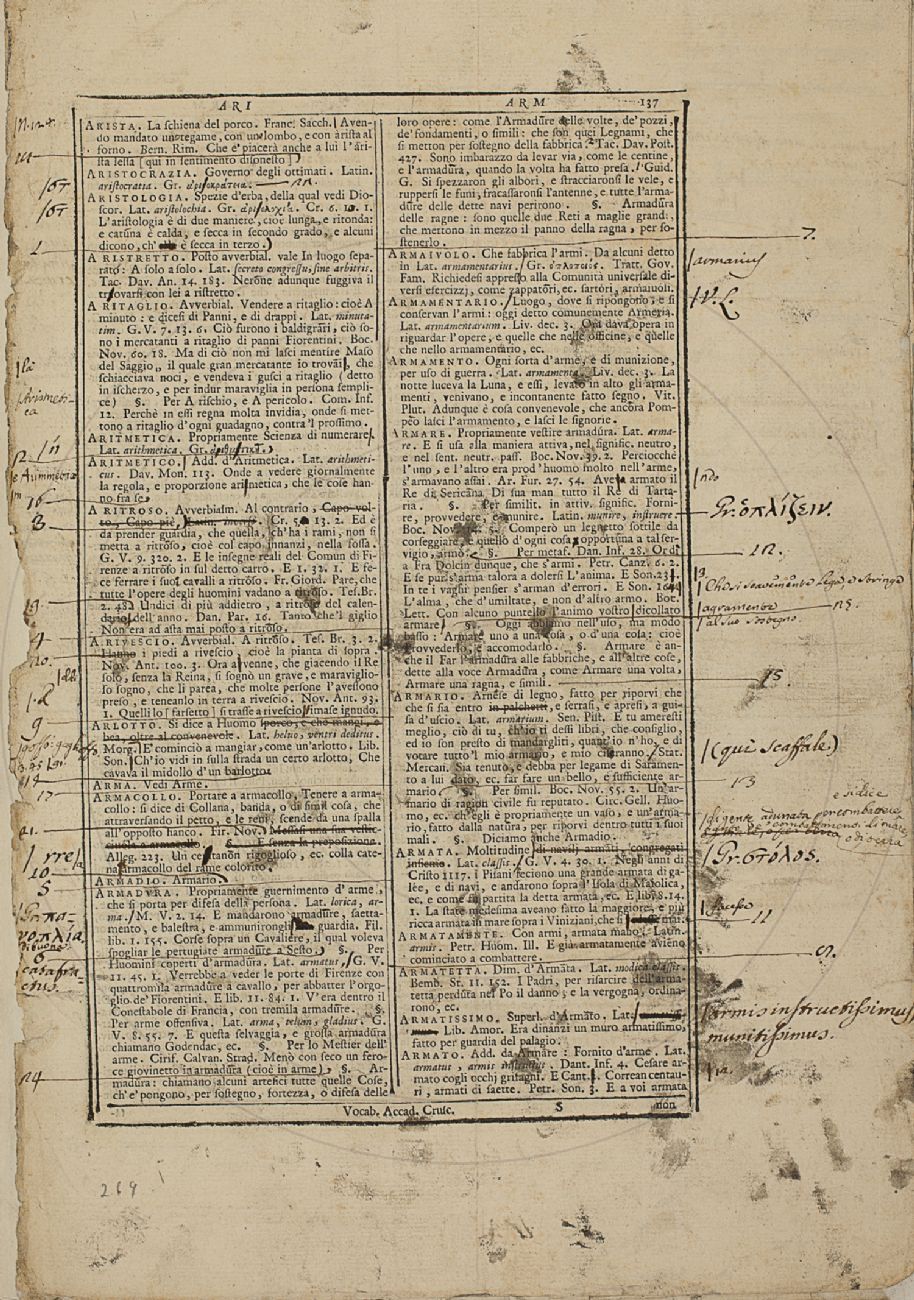 ARI
ARM
137
ARISTA. La schiena del porco. Franc. Sacch. Aven-
do mandato un tegame, con un lombo, e con àrista al
forno. Bern. Rim. Che è piacerà anche a lui l'àri-
sta lessa [qui in sentimento disonesto]
ARISTOCRAZIA. Governo degli ottimati. Latin.
aristocratia. Gr.
ARISTOLOGIA. Spezie d'erba, della qual vedi Dio-
scor. Lat. aristolochia. Gr. Cr. 6. 10. 1.
L'aristologia è di due maniere, cioè lunga, e ritonda:
e catuna è calda, e secca in secondo grado, e alcuni
dicono, ch' è secca in terzo.
A RISTRETTO. Posto avverbial. vale In luogo sepa-
rato: A solo a solo. Lat. secreto congressu, sine arbitris.
Tac. Dav. An. 14. 183. Nerone adunque fuggiva il
trovarsi con lei a ristretto.
A RITAGLIO. Avverbial. Vendere a ritaglio: cioè A
minuto: e dicesi di Panni, e di drappi. Lat. minuta-
tim. G. V. 7. 13. 6. Ciò furono i baldigrari, ciò so-
no i mercatanti a ritaglio di panni Fiorentini. Boc.
Nov. 60. 18. Ma di ciò non mi lasci mentire Maso
del Saggio, il quale gran mercatante io trovai, che
schiacciava noci, e vendeva i gusci a ritaglio (detto
in ischerzo, e per indur maraviglia in persona sempli-
ce) §. Per A rischio, e A pericolo. Com. Inf.
12. Perchè in essi regna molta invidia, onde si met-
tono a ritaglio d'ogni guadagno, contra 'l prossimo.
ARITMETICA. Propriamente Scienza di numerare.
Lat. arithmetica. Gr.
ARITMETICO. Add. d'Aritmetica. Lat. arithmeti-
cus. Dav. Mon. 113. Onde a vedere giornalmente
la regola, e proporzione aritmetica, che le cose han-
no fra se
A RITROSO. Avverbialm. Al contrario, Capo vol-
to, Capo piè, Latin. inverse. Cr. 5. 13. 2. Ed è
da prender guardia, che quella, ch'ha i rami, non si
metta a ritroso, cioè col capo innanzi, nella fossa.
G. V. 9. 320. 2. E le insegne reali del Comun di Fi-
renze a ritroso in sul detto carro. E 1. 32. 1. E fe-
ce ferrare i suoi cavalli a ritroso. Fr. Giord. Pare, che
tutte l'opere degli huomini vadano a ritroso. Tes. Br.
2. 48. Undici di più addietro, a ritroso del calen-
dario dell'anno. Dan. Par. 16. Tanto che 'l giglio
Non era ad asta mai posto a ritroso.
A RIVESCIO. Avverbial. A ritroso. Tes. Br. 3. 2.
Hanno i piedi a rivescio, cioè la pianta di sopra.
Nov. Ant. 100. 3. Ora avenne, che giacendo il Re
solo, senza la Reina, si sognò un grave, e maraviglio-
so sogno, che li parea, che molte persone l'avessono
preso, e teneanlo in terra a rivescio. Nov. Ant. 93.
1. Quelli lo [farsetto] si trasse a rivescio, e rimase ignudo.
ARLOTTO. Si dice a Huomo sporco, e che mangi, e
bea, oltre al convenevole. Lat. heluo, ventri deditus.
Morg. E' cominciò a mangiar, come un'arlotto. Lib.
Son. Ch'io vidi in sulla strada un certo arlotto, Che
cavava il midollo d'un barlotto.
ARMA. Vedi Arme.
ARMACOLLO. Portare a armacollo, Tenere a arma-
collo: si dice di Collana, banda, o di simil cosa, che
attraversando il petto, e le reni, scende da una spalla
all'opposto fianco. Fir. Nov. Messasi una sua vestic-
ciuola a armacollo. §. E senza la proposizione.
Alleg. 223. Un cestaron rigoglioso, ec. colla cate-
na armacollo del rame colorito.
ARMADIO. Armario.
ARMADURA. Propriamente guernimento d'arme,
che si porta per difesa della persona. Lat. lorica, ar-
ma. M. V. 2. 14. E mandarono armadure, saetta-
mento, e balestra, e ammunirongli guardia. Fil.
lib. 1. 155. Corse sopra un Cavaliere, il qual voleva
spogliar le pertugiate armadure a Sesto. §. Per
Huomini coperti d'armadura. Lat. armatus. G. V.
11. 45. 1. Verrebbe a veder le porte di Firenze con
quattromila armadure a cavallo, per abbatter l'orgo-
glio de' Fiorentini. E lib. 11. 84. 1. V'era dentro il
Conestabole di Francia, con tremila armadure. §.
Per arme offensiva. Lat. arma, telum, gladius. G.
V. 8. 55. 7. E questa selvaggia, e grossa armadura
chiamano Godendac, ec. §. Per lo Mestier dell'
arme. Cirif. Calvan. Strad. Menò con seco un fero-
ce giovinetto in armadura (cioè in arme). §. Ar-
madura: chiamano alcuni artefici tutte quelle Cose,
ch'e' pongono, per sostegno, fortezza, o difesa delle
loro opere: come l'Armadure delle volte, de' pozzi,
de' fondamenti, o simili: che son quei Legnami, che
si metton per sostegno della fabbrica. Tac. Dav. Post.
427. Sono imbarazzo da levar via, come le centine,
e l'armadura, quando la volta ha fatto presa. Guid.
G. Si spezzaron gli albori, e stracciaronsi le vele, e
ruppersi le funi, fracassaronsi l'antenne, e tutte l'arma-
dure delle dette navi perirono. §. Armadura
delle ragne: sono quelle due Reti a maglie grandi,
che mettono in mezzo il panno della ragna, per so-
stenerlo.
ARMAIVOLO. Che fabbrica l'armi. Da alcuni detto
in Lat. armamentarius. Gr. Tratt. Gov.
Fam. Richiedesi appresso alla Comunità universale di-
versi esercizj, come zappatori, ec. sartori, armaiuoli.
ARMAMENTARIO. Luogo, dove si ripongono, e si
conservan l'armi: oggi detto comunemente Armeria.
Lat. armamentarium. Liv. dec. 3. Ora dava opera in
riguardar l'opere, e quelle che nelle officine, e quelle
che nello armamentario, ec.
ARMAMENTO. Ogni sorta d'arme, e di munizione,
per uso di guerra. Lat. armamenta. Liv. dec. 3. La
notte luceva la Luna, e essi, levato in alto gli arma-
menti, venivano, e incontanente fatto segno. Vit.
Plut. Adunque è cosa convenevole, che ancora Pom-
peo lasci l'armamento, e lasci le signorie.
ARMARE. Propriamente vestire armadura. Lat. arma-
re. E si usa alla maniera attiva, nel signific. neutro,
e nel sent. neutr. pass. Boc. Nov. 39. 2. Perciocchè
l'uno, e l'altro era prod'huomo molto nell'arme,
s'armavano assai. Ar. Fur. 27. 54. Avea armato il
Re di Sericana Di sua man tutto il Re di Tarta-
ria. §. Per similit. in attiv. signific. Forni-
re, provvedere, e munire. Latin. munire, instruere.
Boc. Nov. §. Comperò un legnetto sottile da
corseggiare, e quello d'ogni cosa opportuna a tal ser-
vigio, armò. §. Per metaf. Dan. Inf. 28. Or di
a Fra Dolcin dunque, che s'armi. Petr. Canz. 6. 2.
E se pur s'arma talora a dolersi L'anima. E Son. 23.
In te i vaghi pensier s'arman d'errori. E Son.
L'alma, che d'umiltate, e non d'altro armo. Boc.
Lett. Con alcuno puntello l'animo vostro dicollato
armare §. Oggi abbiamo nell'uso, ma modo
basso: Armare uno a una cosa, o d'una cosa: cioè
Provvederlo, e accomodarlo. §. Armare è an-
che il Far l'armadura alle fabbriche, e all'altre cose,
dette alla voce Armadura, come Armare una volta,
Armare una ragna, e simili.
ARMARIO. Arnese di legno, fatto per riporvi che
che si sia entro in palchetti, e serrasi, e apresi, a gui-
sa d'uscio. Lat. armarium. Sen. Pist. E tu ameresti
meglio, ciò di tu, ch'io ti dessi libri, che consiglio,
ed io son presto di mandargliti, quant'io n'ho, e di
votare tutto 'l mio armario, e mio granno. Stat.
Mercan. Sia tenuto, e debba per legame di Saramen-
to a lui dato, ec. far fare un bello, e sufficiente ar-
mario §. Per simil. Boc. Nov. 55. 2. Un'ar-
mario di ragion civile fu reputato. Circ. Gell. Huo-
mo, ec. ch'egli è propriamente un vaso, e un'arma-
rio, fatto dalla natura, per riporvi dentro tutti i suoi
mali. §. Diciamo anche Armadio.
ARMATA. Moltitudine di navilj armati, congregati
insieme. Lat. classis. G. V. 4. 30. 1. Negli anni di
Cristo 1117. i Pisani feciono una grande armata di ga-
lèe, e di navi, e andarono sopra l'Isola di Maiolica,
ec. e come fu partita la detta armata, ec. E lib. 8. 14.
1. La state medesima aveano fatto la maggiore, e più
ricca armata in mare sopra i Viniziani, che si
ARMATAMENTE. Con armi, armata mano. Latin.
armis. Petr. Huom. Ill. E già armatamente avieno
cominciato a combattere.
ARMATETTA. Dim. d'Armata. Lat. modica classis.
Bemb. St. 11. 152. I Padri, per risarcire dell'arma-
tetta perduta nel Po il danno, e la vergogna, ordina-
rono, ec.
ARMATISSIMO. Superl. d'Armato. Lat.
Lib. Amor. Era dinanzi un muro armatissimo,
fatto per guardia del palagio.
ARMATO. Add. da Armare: Fornito d'arme. Lat.
armatus, armis instructus. Dant. Inf. 4. Cesare ar-
mato cogli occhi grifagni. E Cant. Correan centau-
ri, armati di saette. Petr. Son. 3. E a voi armata
Vocab. Accad. Crusc.
S
non
7.
armarius
V. L.
Gr. ὁπλίζειν.
12.
15.
(qui scaffale.)
13
Gr. στόλος.
11
9.
armis instructissimus
munitissimus.
16
8
13
4
9
14
17
21
10
5
24
269